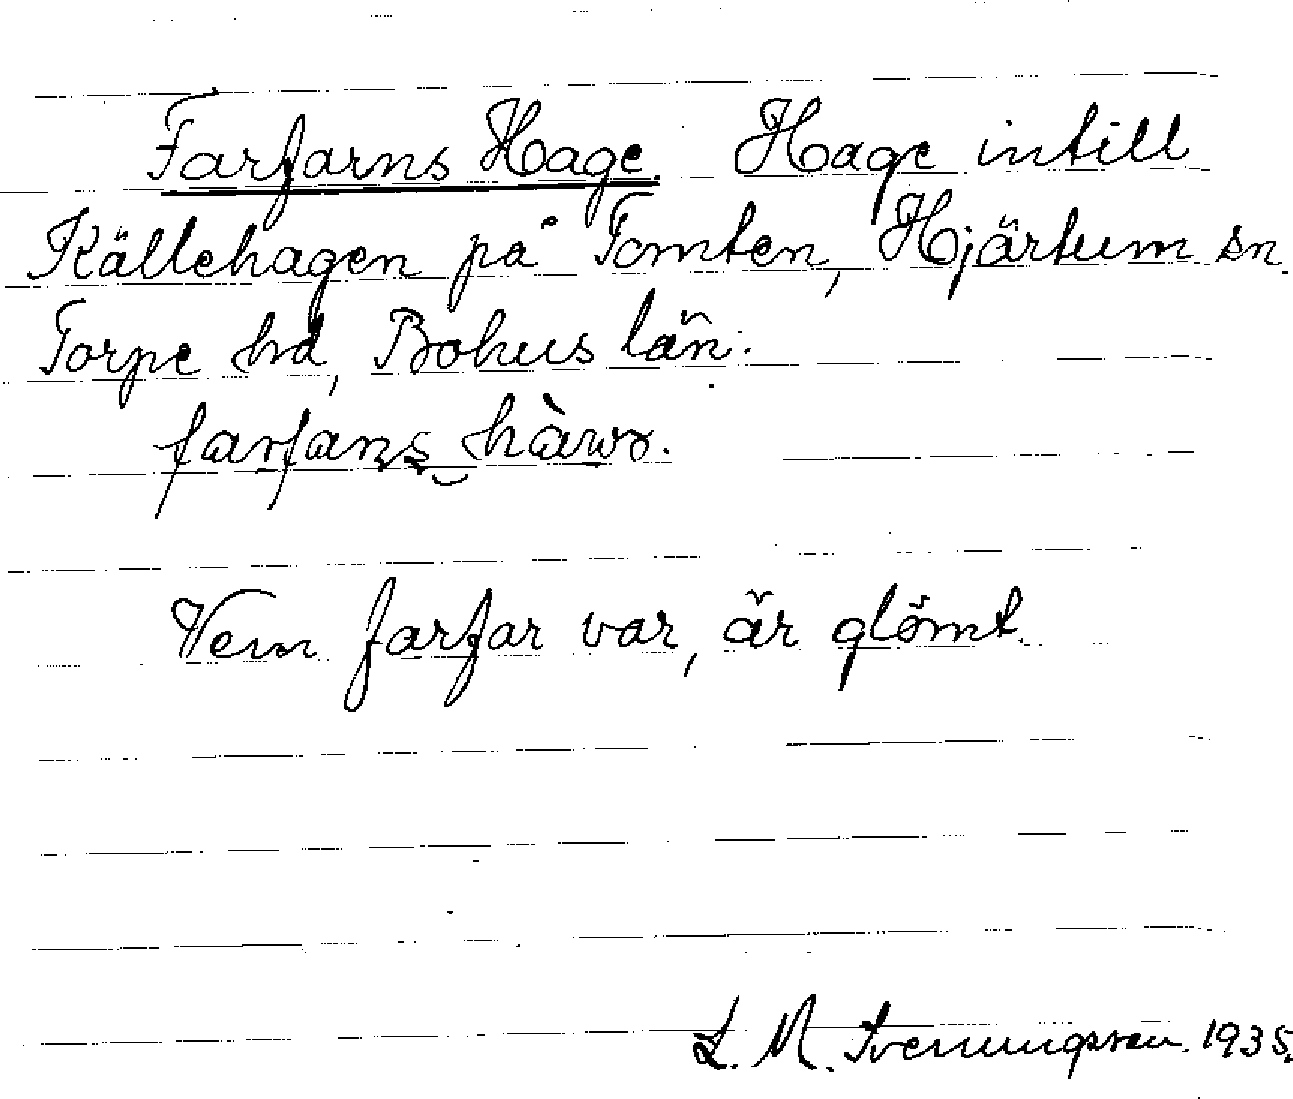 Farfarns Hage. Hage intill
Källehagen på Tomten, Hjärtum sn.
Torpe hd, Bohus län.
farfans
Vem farfar var, är glömt.
L. M. Svenungsson. 1935.